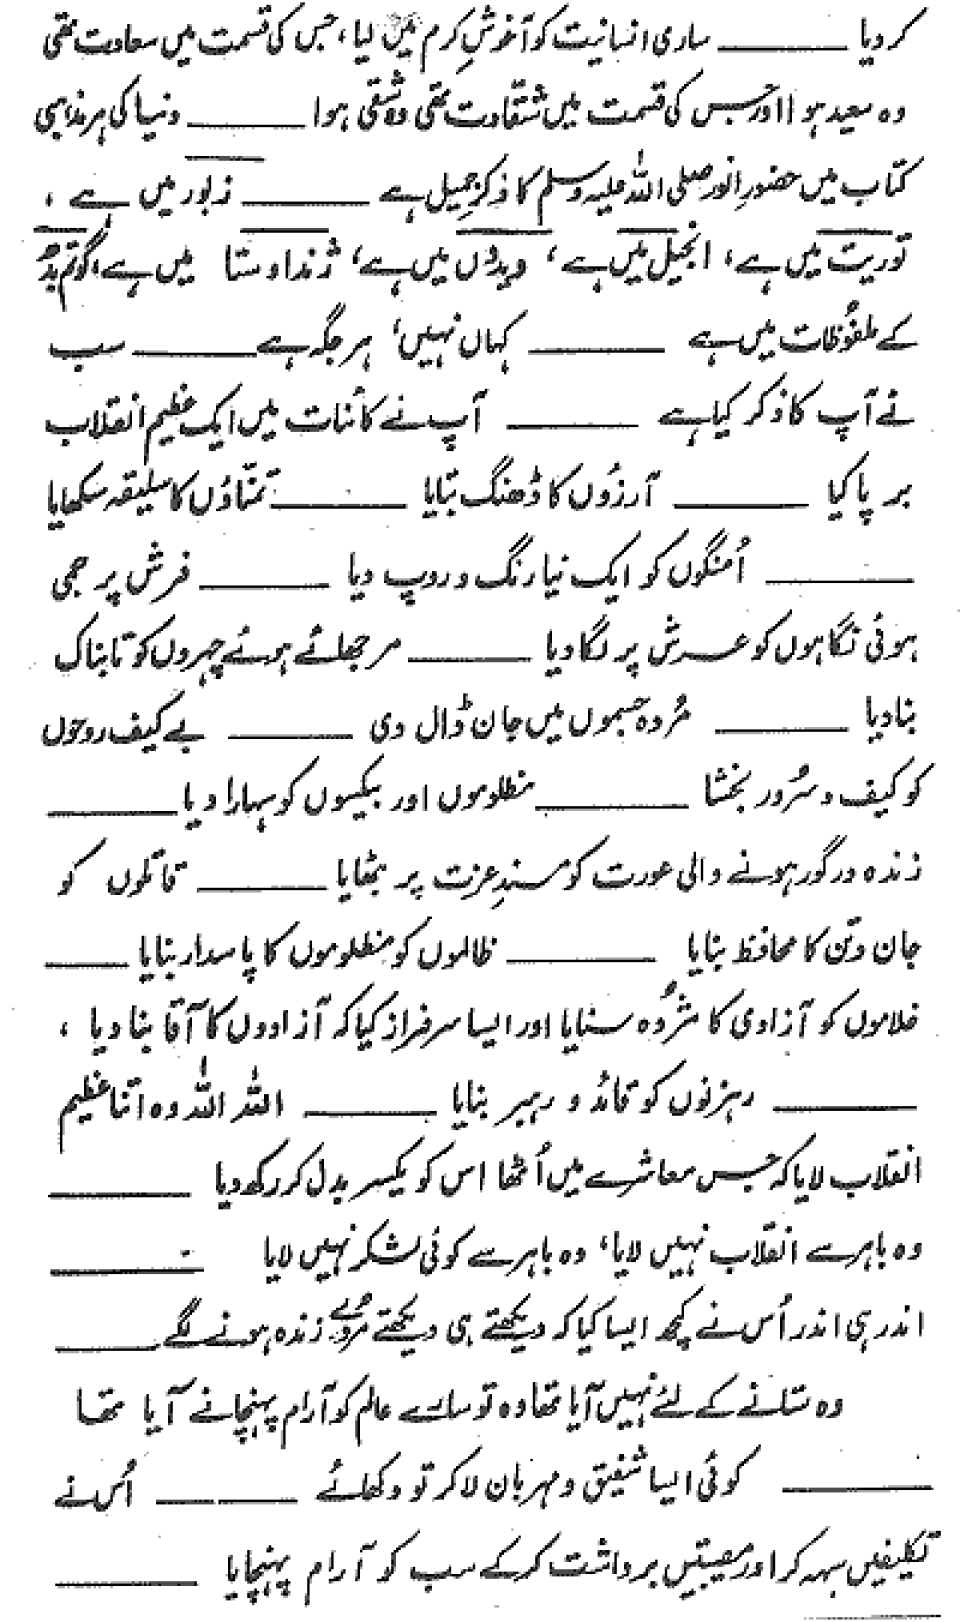 کردیا ——— ساری انسانیت کو آغوشِ کرم میں لیا، جس کی قسمت میں سعادت تھی
وہ سعید ہوا اور جس کی قسمت میں شقاوت تھی وہ شقی ہوا ——— دنیا کی ہر مذہبی
کتاب میں حضورِ انور صلی اللہ علیہ وسلم کا ذکرِ جمیل ہے ——— زبور میں ہے ،
توریت میں ہے، انجیل میں ہے، ویدوں میں ہے، ژنداوستا میں ہے، گوتم بدُّھ
کے ملفوُظات میں ہے ——— کہاں نہیں، ہر جگہ ہے ——— سب
نے آپ کا ذکر کیا ہے ——— آپ نے کائنات میں ایک عظیم انقلاب
برپا کیا ——— آرزؤں کا ڈھنگ بتایا ——— تمنّاؤں کا سلیقہ سکھایا
——— اُمنگوں کو ایک نیا رنگ و روپ دیا ——— فرش پر جمی
ہوئی نگاہوں کو عرش پر لگا دیا ——— مرجھائے ہوئے چہروں کو تابناک
بنا دیا ——— مُردہ جسموں میں جان ڈال دی ——— بے کیف روحوں
کو کیف و سُرور بخشا ——— مظلوموں اور بیکسوں کو سہارا دیا ———
زندہ درگور ہونے والی عورت کو مسندِ عزت پر بٹھایا ——— قاتلوں کو
جان و تن کا محافظ بنایا ——— ظالموں کو مظلوموں کا پاسدار بنایا ———
غلاموں کو آزادی کا مژدہ سنایا اور ایسا سرفراز کیا کہ آزادوں کا آقا بنا دیا ،
——— رہزنوں کو قائد و رہبر بنایا ——— اللہ اللہ وہ اتنا عظیم
انقلاب لایا کہ جس معاشرے میں اُٹھا اس کو یکسر بدل کر رکھ دیا ———
وہ باہر سے انقلاب نہیں لایا، وہ باہر سے کوئی لشکر نہیں لایا ———
اندر ہی اندر اُس نے کچھ ایسا کیا کہ دیکھتے ہی دیکھتے مُردے زندہ ہونے لگے ———
وہ ستانے کے لئے نہیں آیا تھا وہ تو سارے عالم کو آرام پہنچانے آیا تھا
——— کوئی ایسا شفیق و مہربان لا کر تو دکھائے ——— اُس نے
تکلیفیں سہہ کر اور مصیبتیں برداشت کر کے سب کو آرام پہنچایا ———